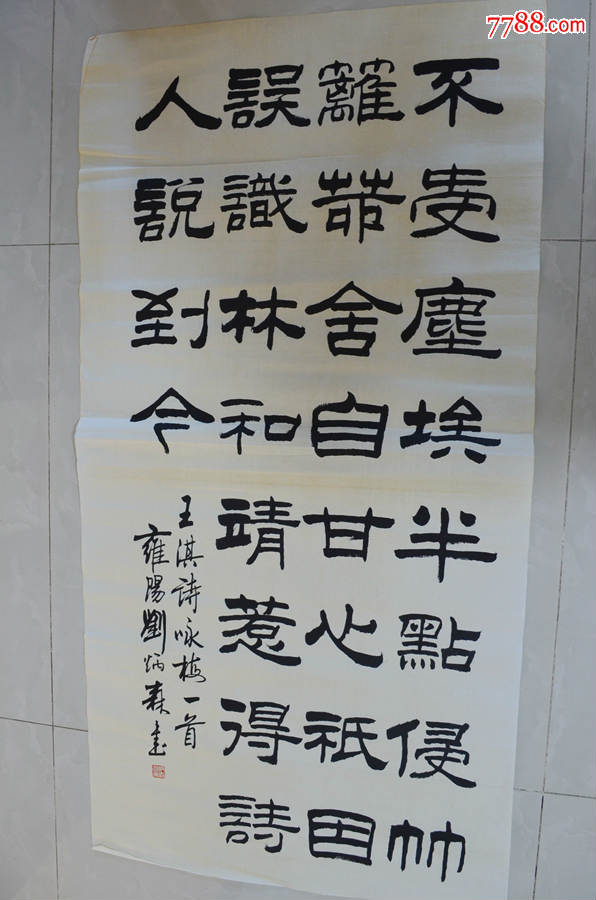 不受塵埃半點侵竹
籬茆舍自甘心祇因
誤識林和靖惹得詩
人說到今
王淇詩咏梅一首
雍陽劉炳森書
7788.com